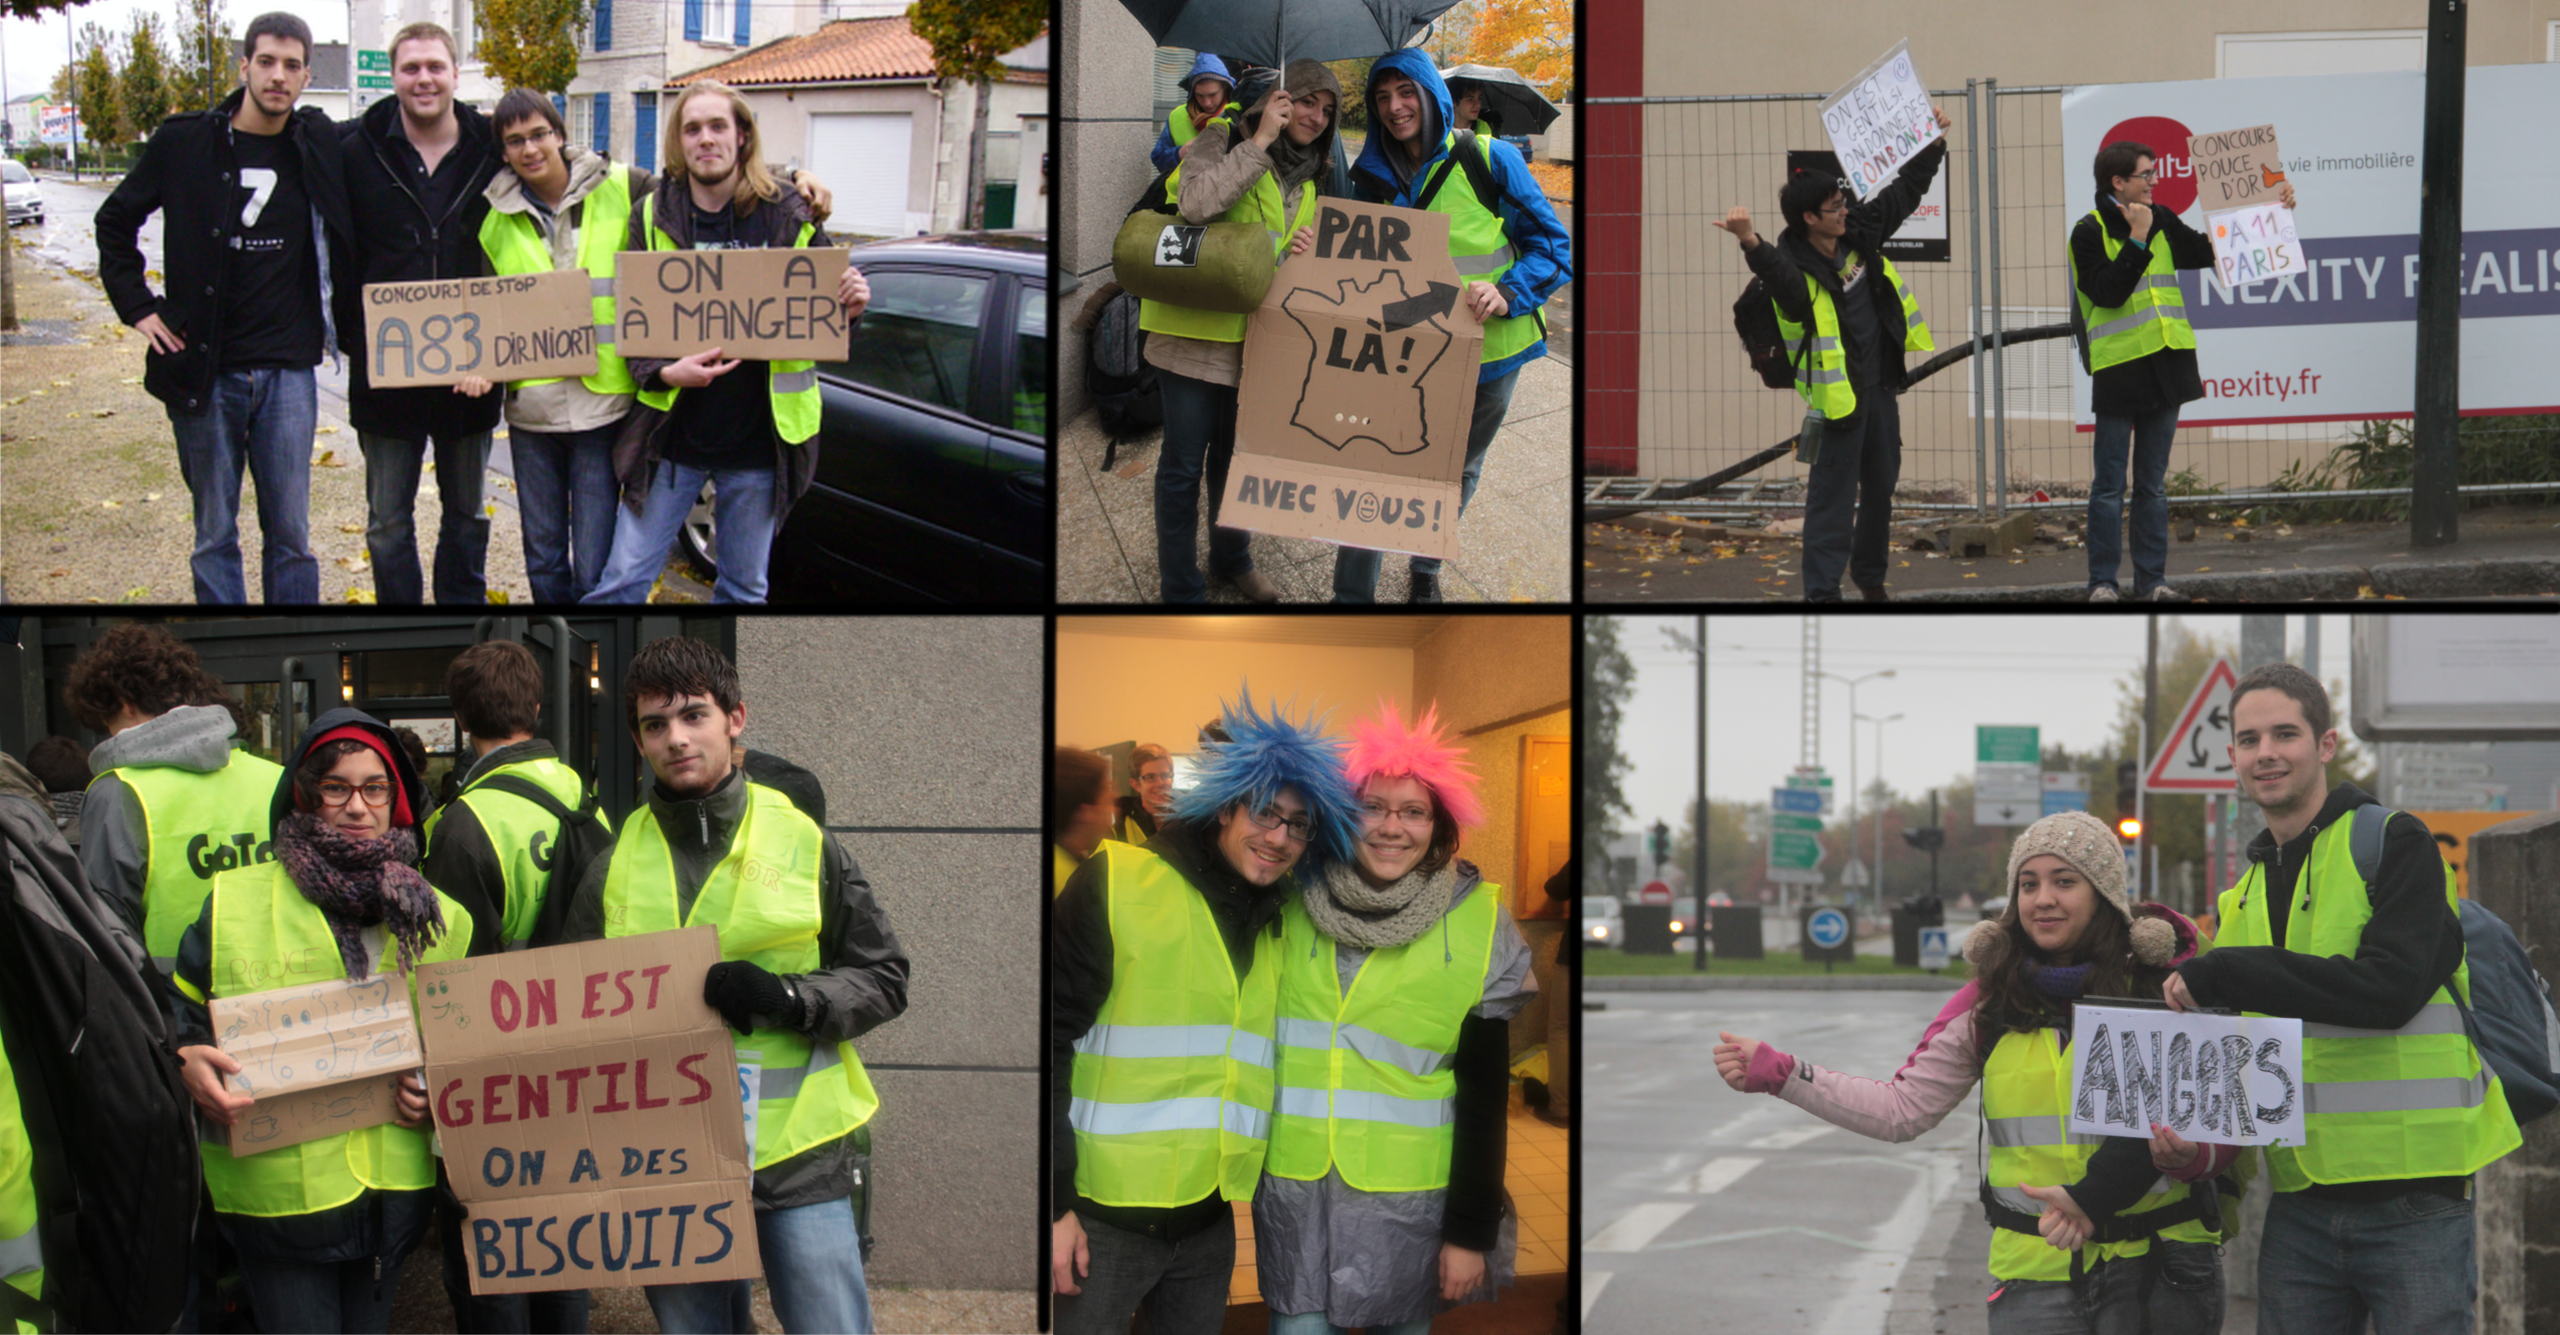 7
CONCOURS DE STOP
A83 DIR NIORT
ON A
À MANGER!
PAR
LÀ!
...
AVEC VOUS!
ON EST
GENTILS!
ON DONNE DES
BONBONS
CONCOURS
POUCE
D'OR
A 11
PARIS
vie immobilière
NEXITY REALIS
nexity.fr
GoTo
POUCE
OR
ON EST
GENTILS
ON A DES
BISCUITS
ANGERS